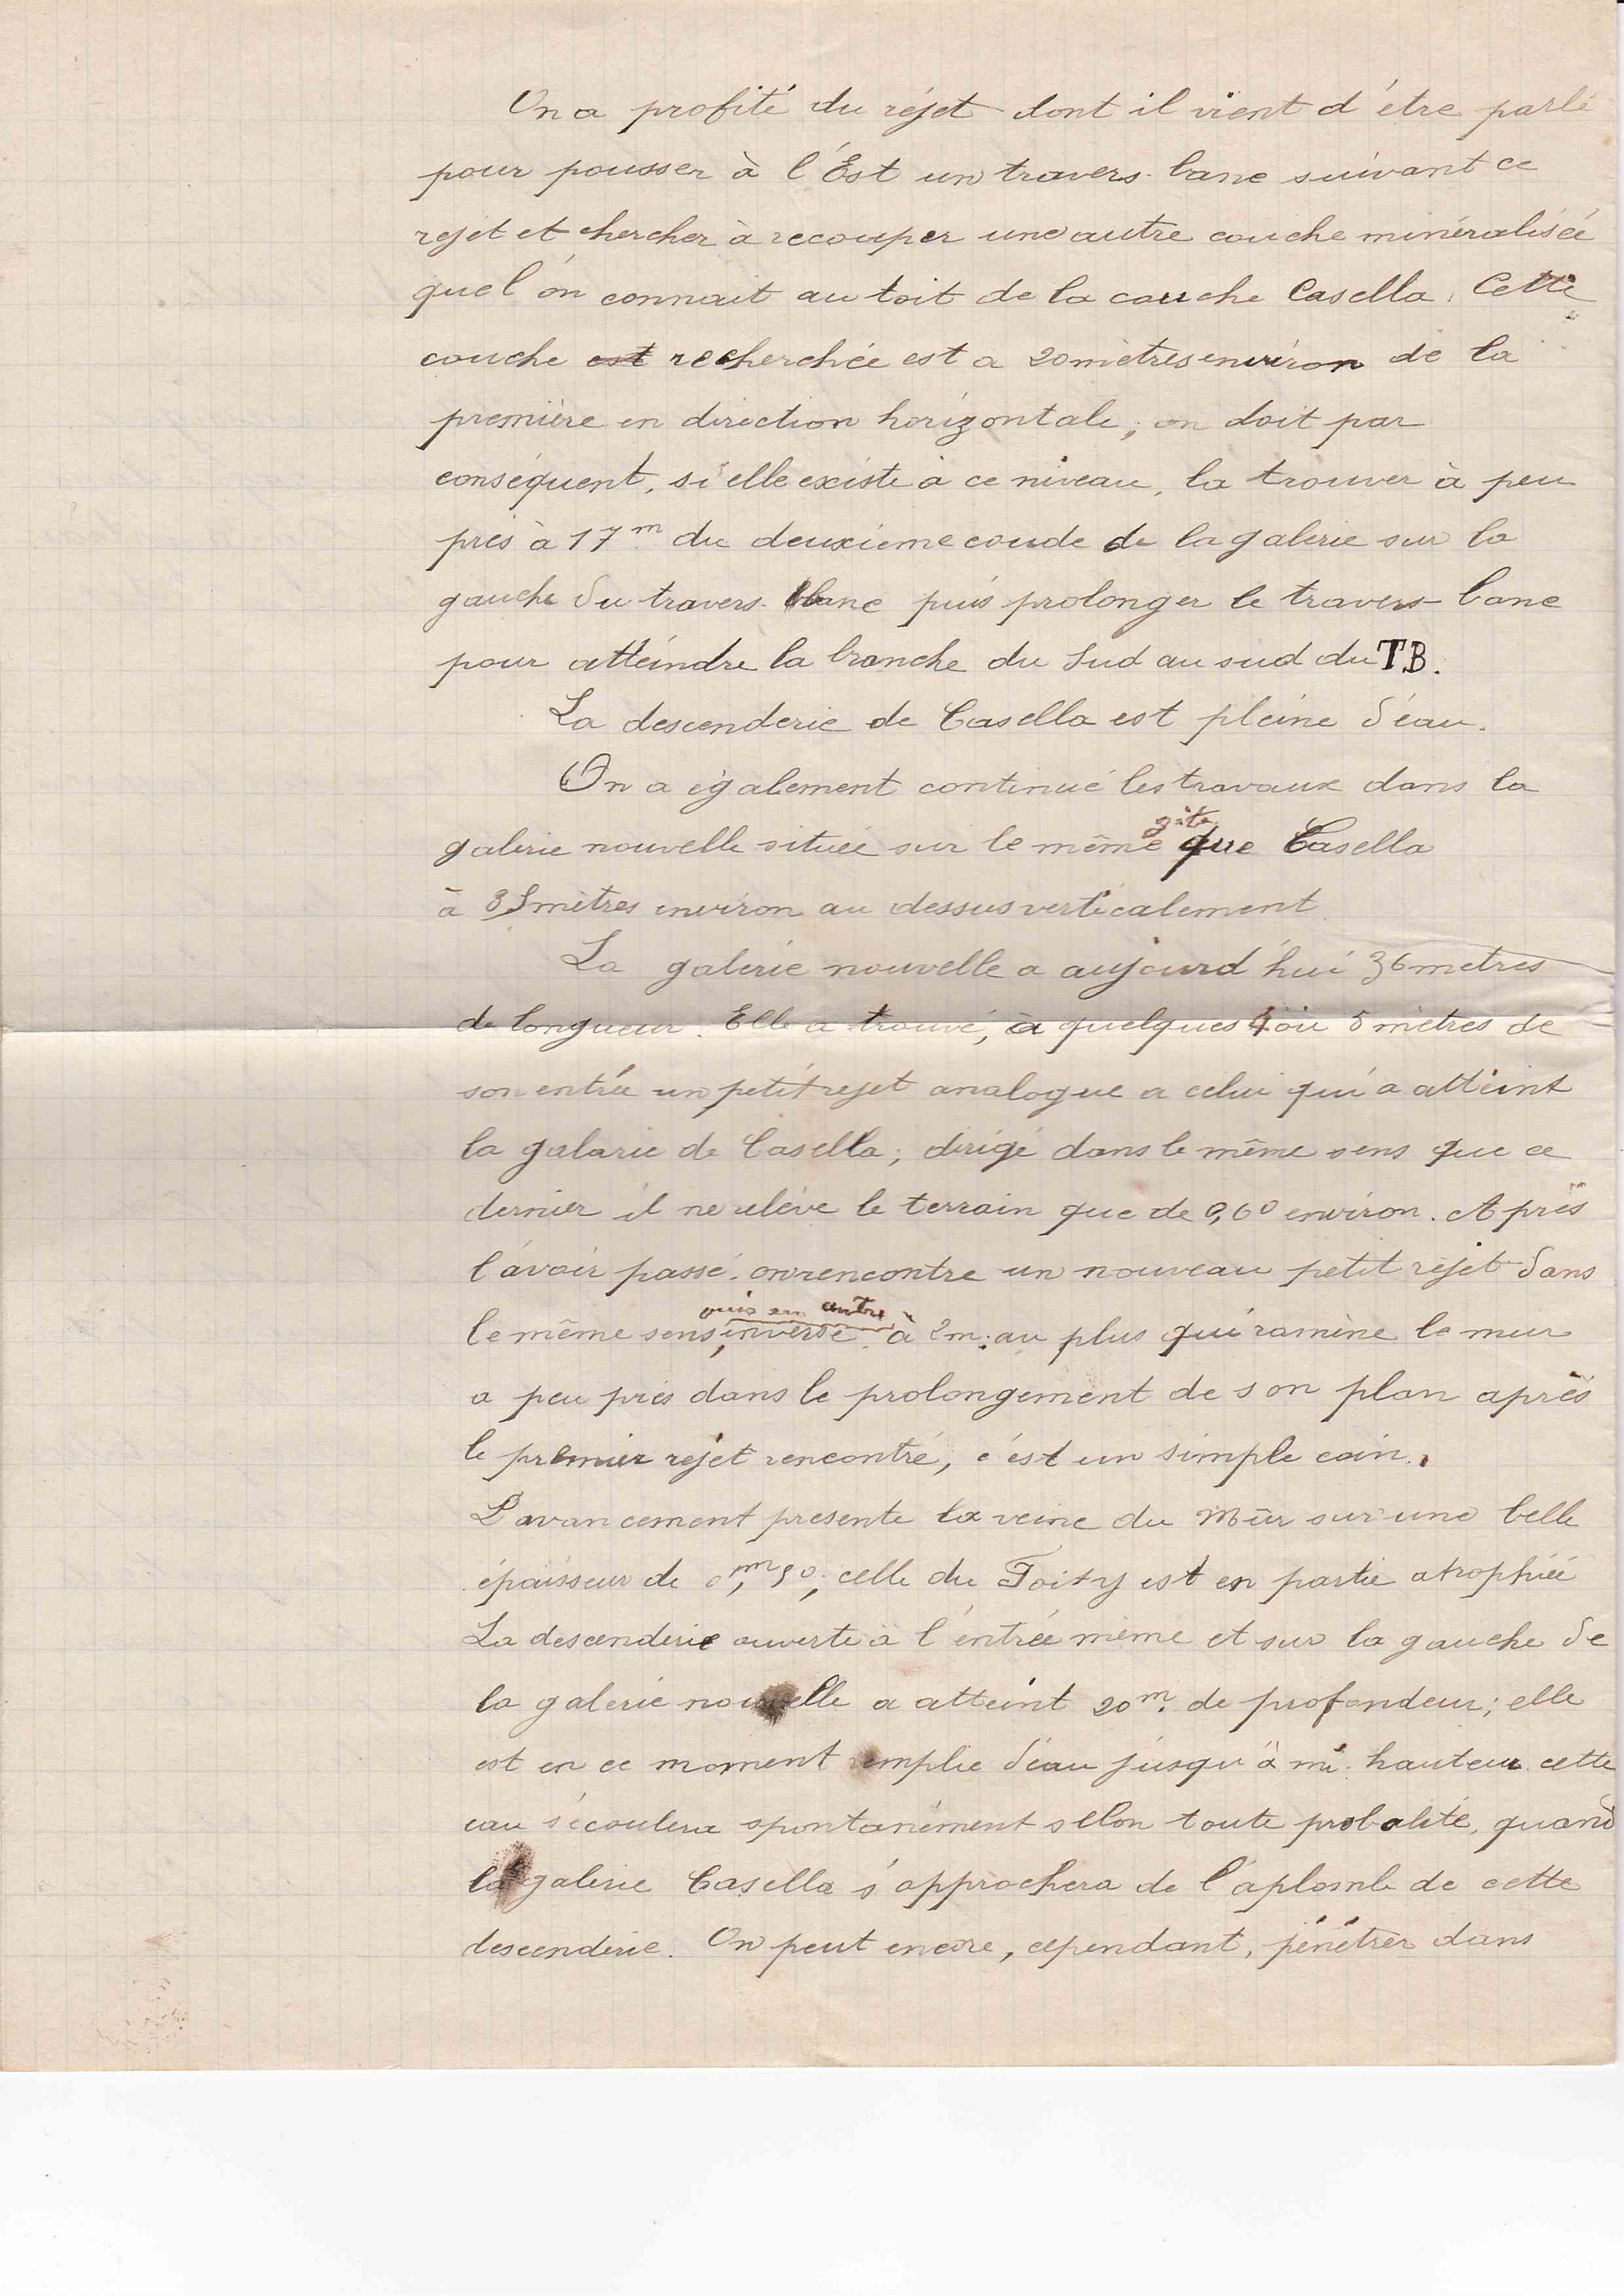 On a profité du réjet dont il vient d'être parlé
pour pousser à l'Est un travers-banc suivant ce
rejet et chercher à recouper une autre couche minéralisée
que l'on connait au toit de la couche Casella. Cette
couche est recherchée est a 20 mètres environ de la
première en direction horizontale; on doit par
conséquent, si elle existe à ce niveau, la trouver à peu
près à 17m du deuxième coude de la galerie sur la
gauche du travers-banc puis prolonger le travers-banc
pour atteindre la branche du Sud au sud du TB.
La descenderie de Casella est pleine d'eau.
On a également continué les travaux dans la
gite
galerie nouvelle située sur le même que Casella
à mètres environ au dessus verticalement.
La galerie nouvelle a aujourd'hui 36 metres
de longueur. Elle a trouvé, à quelques 4 ou 5 mètres de
son entrée un petit rejet analogue a celui qui a atteint
la galarie de Casella; dirigé dans le même sens que ce
dernier il ne relève le terrain que de 0,60 environ. Après
l'avoir passé, on rencontre un nouveau petit rejet dans
puis un autre
le même sens, inverse à 2m. au plus qui ramène le mur
a peu près dans le prolongement de son plan après
le premier rejet rencontré, c'est un simple coin.
L'avancement presente la veine du Mûr sur une belle
épaisseur de celle du est en partie atrophiée
La descenderie ouverte à l'entrée même et sur la gauche de
la galerie nouvelle a atteint 20m. de profondeur; elle
est en ce moment remplie d'eau jusqu'à mi-hauteur cette
eau s'écoulera spontanément selon toute probalité, quand
la galerie Casella s'approchera de l'aplomb de cette
descenderie. On peut encore, cependant, pénétrer dans